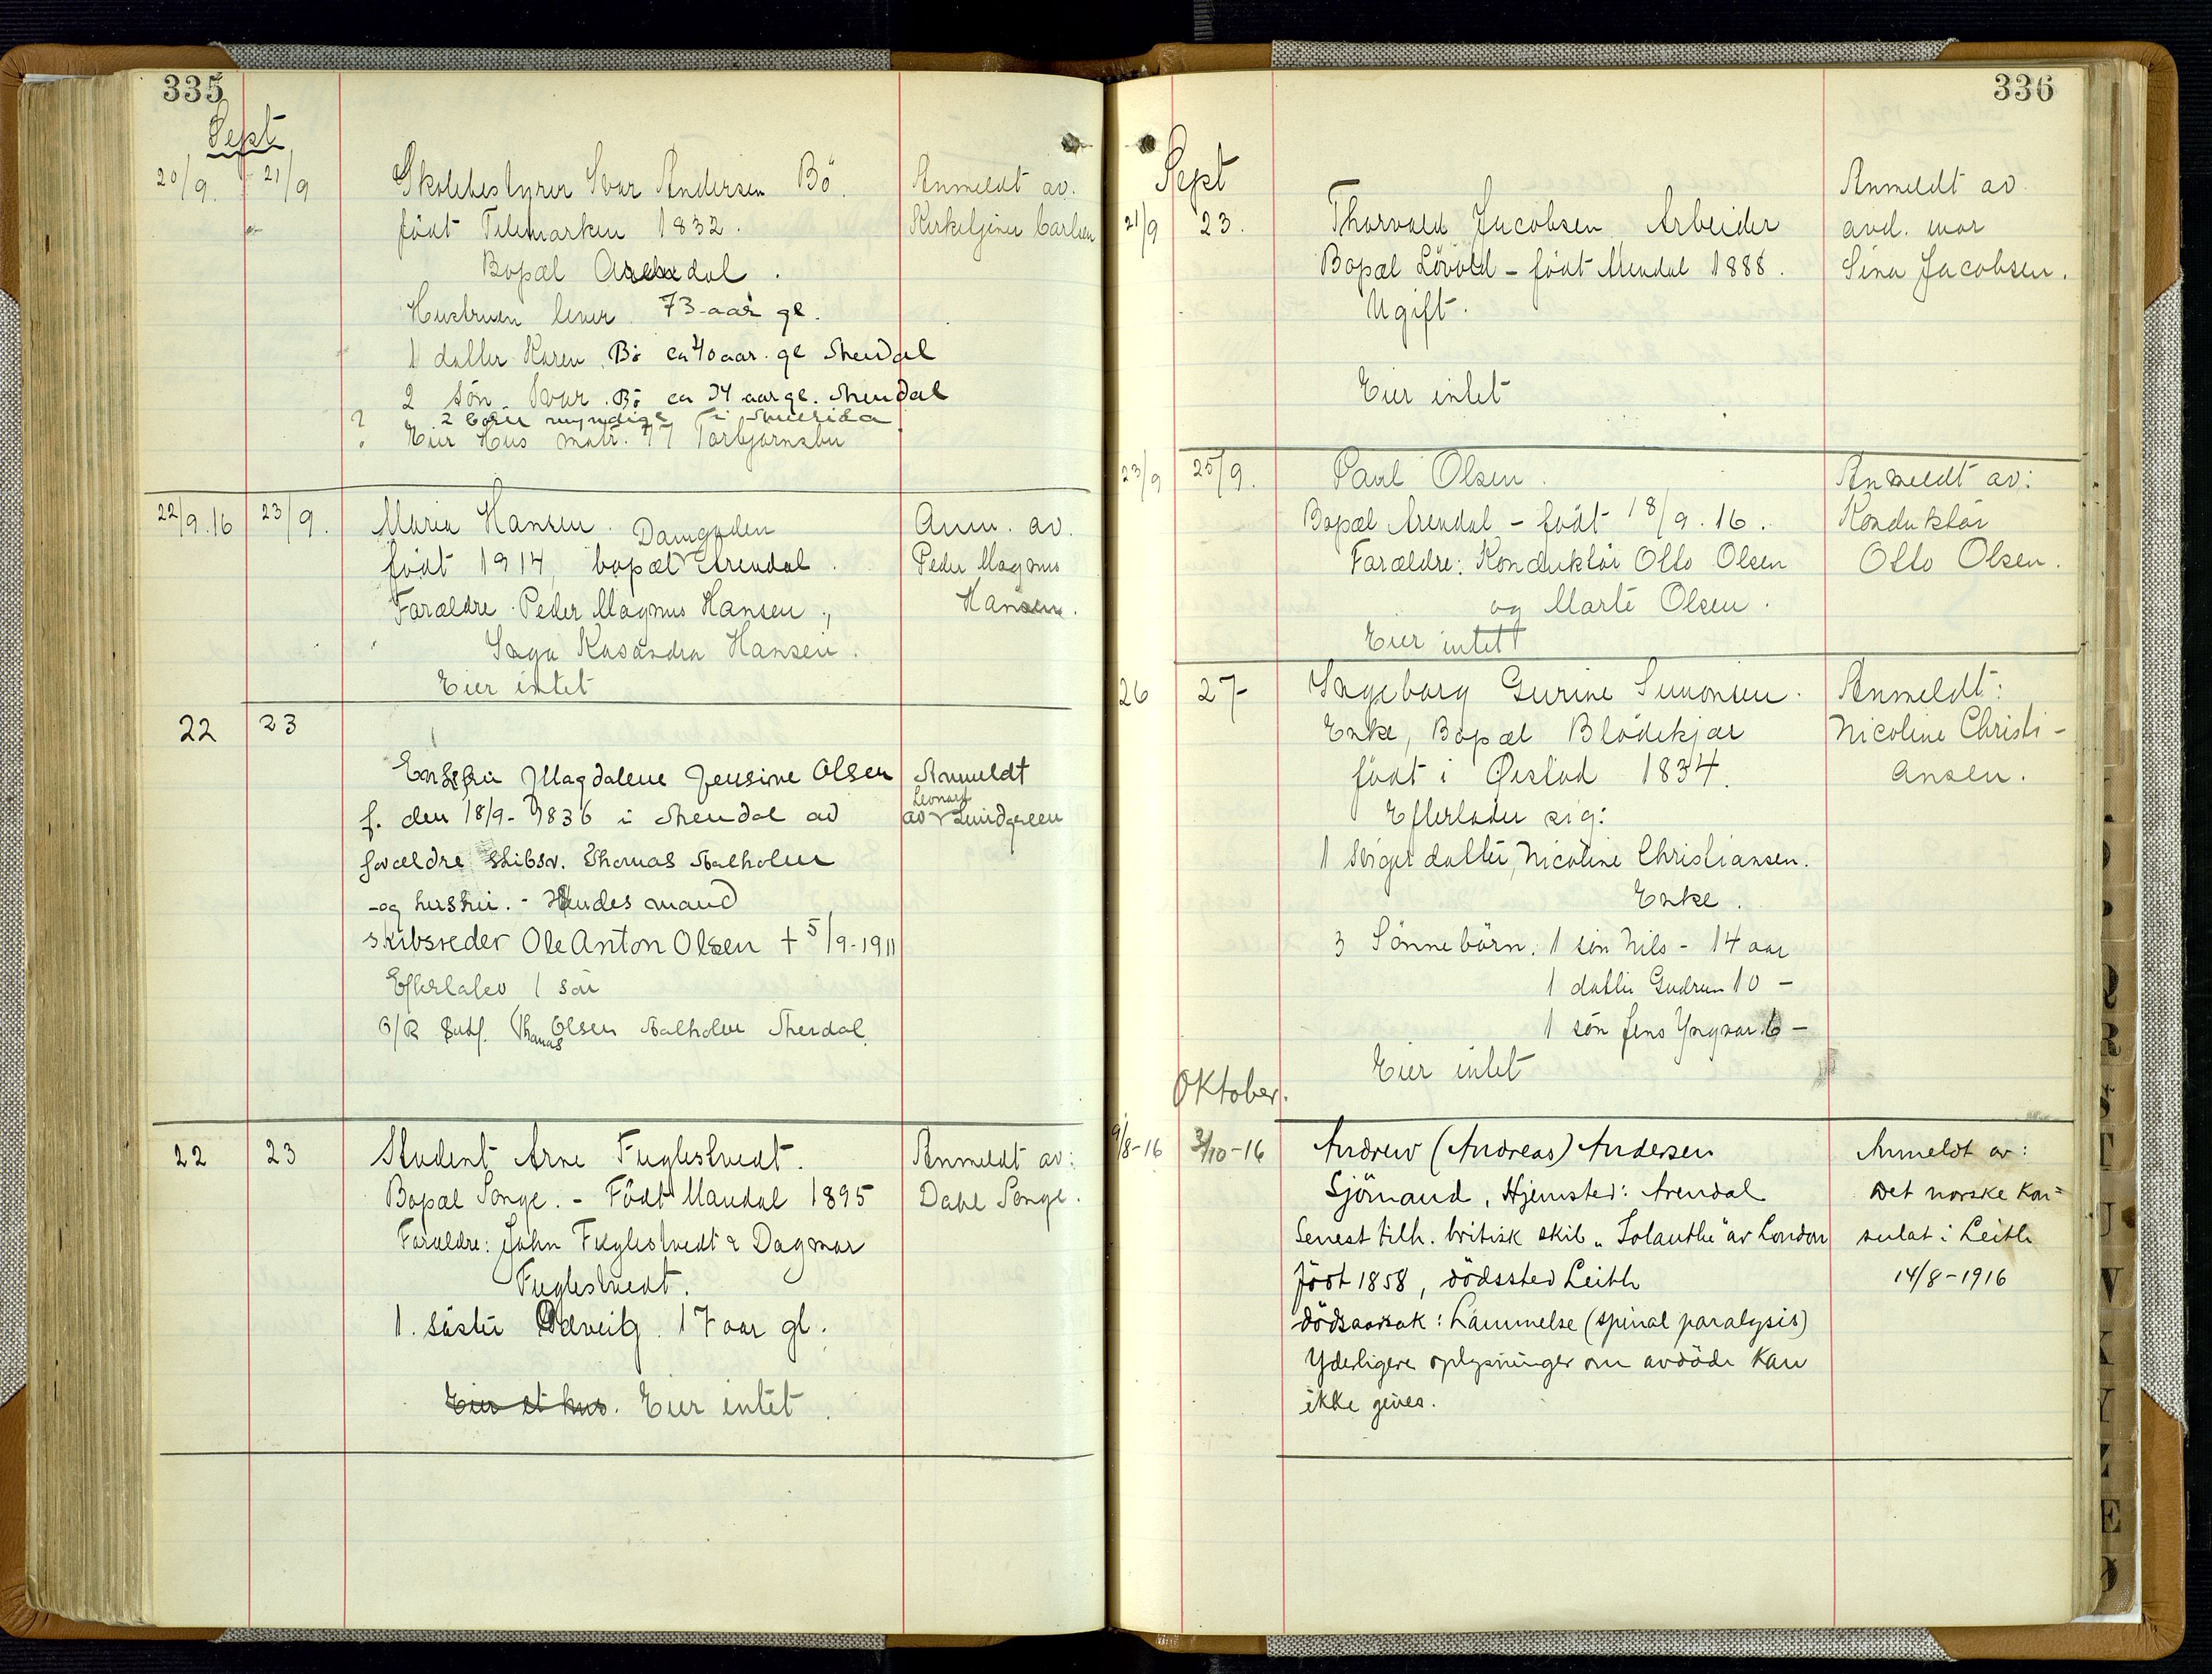 335
Sept
20/9. 21/9 Skolebestyrer Ivar Andersen Bö. Anmeldt av.
født Telemarken 1832. Kirketjener Carlsen
Bopæl Arendal.
Hustruen lever 73 aar gl.
1 datter Karen Bö ca 40 aar. gl Arendal
2 søn Ivar Bö ca 34 aar gl. Arendal
? 2 børn myndige i Amerika
? Eier Hus matr. 77 Torbjørnsbu
22/9.16 23/9. Maria Hansen. Anm. av.
Damgaden
født 1914, bopæl Arendal. Peder Magnus
Forældre Peder Magnus Hansen, Hansen.
Inga Kasandra Hansen.
Eier intet
22 23
Enkefru Magdalene Jensine Olsen Anmeldt
Leonard
f. den 18/9-1836 i Arendal av av Lindgreen
forældre skibsr. Thomas Aalholm
og hustru. - Hendes mand
skibsreder Ole Anton Olsen + 5/9-1911
Efterlater 1 søn
Thomas Olsen Aalholm Arendal.
22 23 Student Arne Fuglestvedt. Anmeldt av:
Bopæl Songe. - Født Mandal 1895 Dahl Songe.
Forældre: John Fuglestvedt & Dagmar
Fuglestvedt.
1. søster 17 aar gl.
Eier et hus. Eier intet.
336
Sept
Anmeldt av
21/9 23. Thorvald Jacobsen Arbeider avd. mor
Bopæl Lövold - født Arendal 1888. Sina Jacobsen.
Ugift.
Eier intet
23/9 25/9. Paul Olsen. Anmeldt av:
Bopæl Arendal - født 18/9.16. Konduktør
Forældre: Konduktør Otto Olsen Otto Olsen.
og Marte Olsen.
Eier intet
26 27- Ingeborg Gurine Simonsen. Anmeldt:
Enke, Bopæl Blødekjær Nicoline Christi-
født i Øiestad 1834. ansen.
Efterlader sig:
1 sviger datter, Nicoline Christiansen.
Enke.
3 Sønnebørn. 1 søn Nils - 14 aar
1 datter Gudrun 10 -
1 søn Jens Yngvar 6 -
Eier intet
Oktober.
9/8-16 3/10-16 Andrew (Andreas) Andersen Anmeldt av:
Sjömand, Hjemsted: Arendal Det norske kon=
Senest tilh. britisk skib „Iolanthe" av London sulat i Leith
født 1858, dödssted Leith 14/8-1916
dödsaarsak: Lammelse (spinal paralysis)
Yderligere oplysninger om avdöde kan
ikke gives.